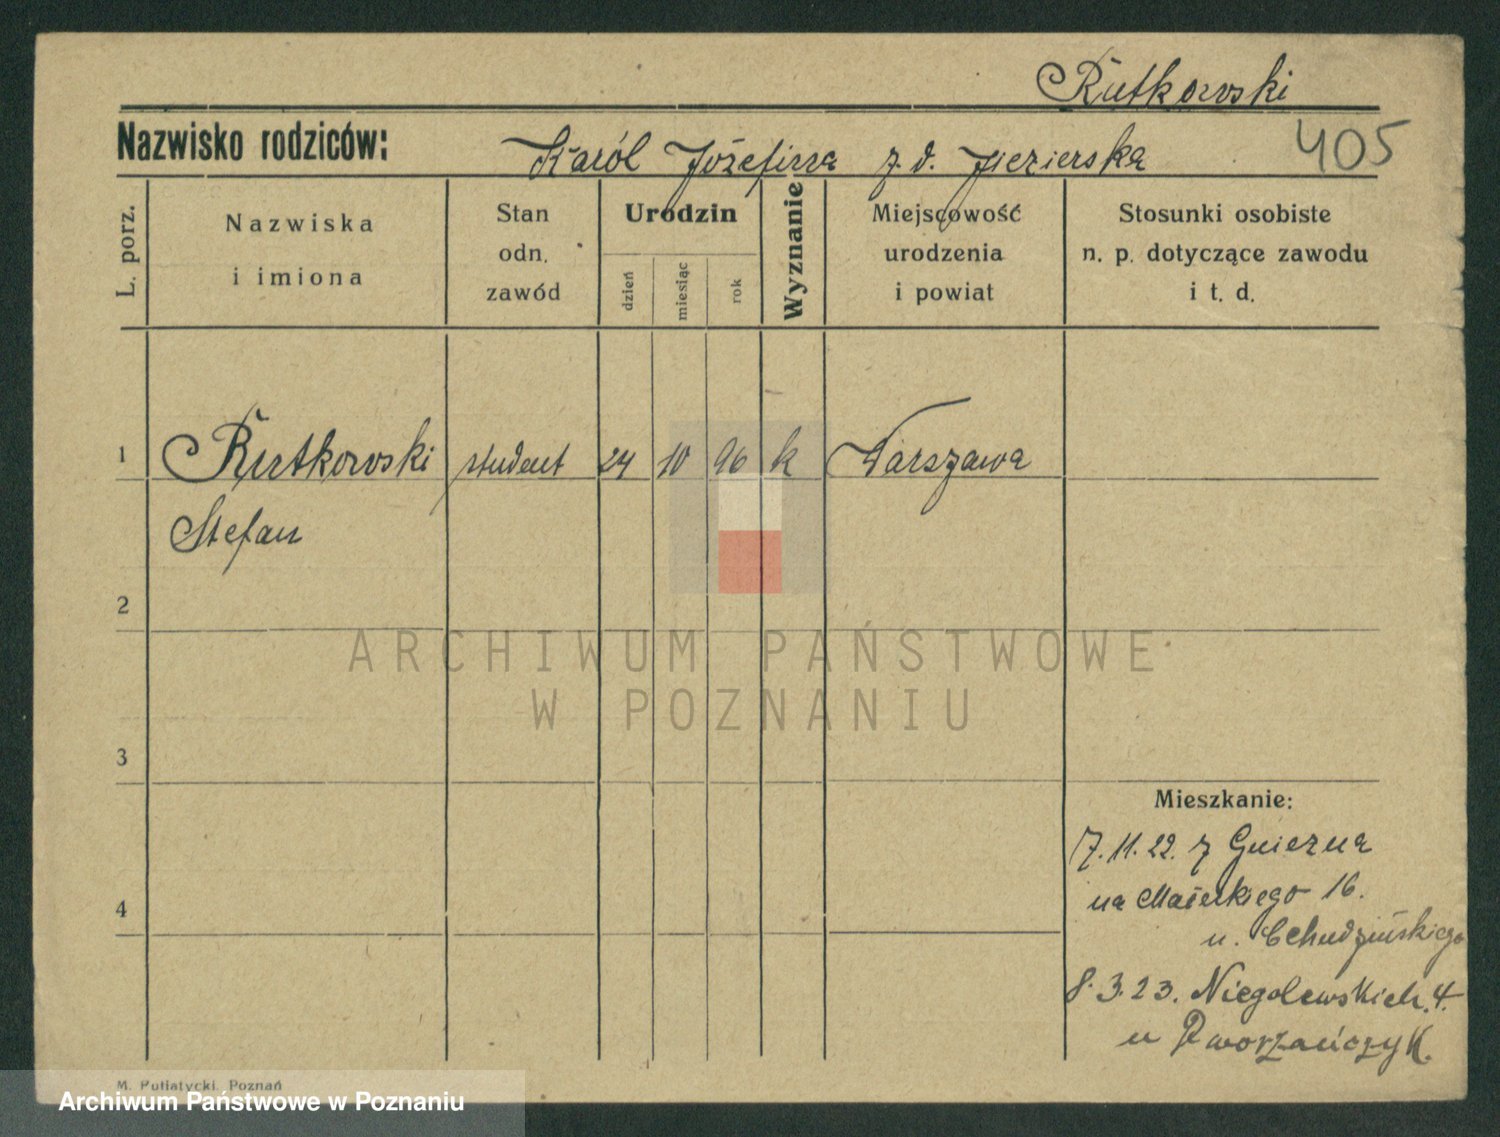 Rutkowski
Nazwisko rodziców: Karól Józefina z d. Jezierska 405
L. porz.
Nazwiska i imiona
Stan odn. zawód
Urodzin
dzień miesiąc rok
Wyznanie
Miejscowość urodzenia i powiat
Stosunki osobiste n. p. dotyczące zawodu i t. d.
1 Rutkowski student 24 10 96 k Warszawa
Stefan
2
ARCHIWUM PAŃSTWOWE
W POZNANIU
3
Mieszkanie:
7.11.22. z Gniezna
na Małeckiego 16.
4
u. Chudzińskiego
8.3.23. Niegolewskich 4.
u Dworzańczyk.
M. Putiatycki, Poznań
Archiwum Państwowe w Poznaniu